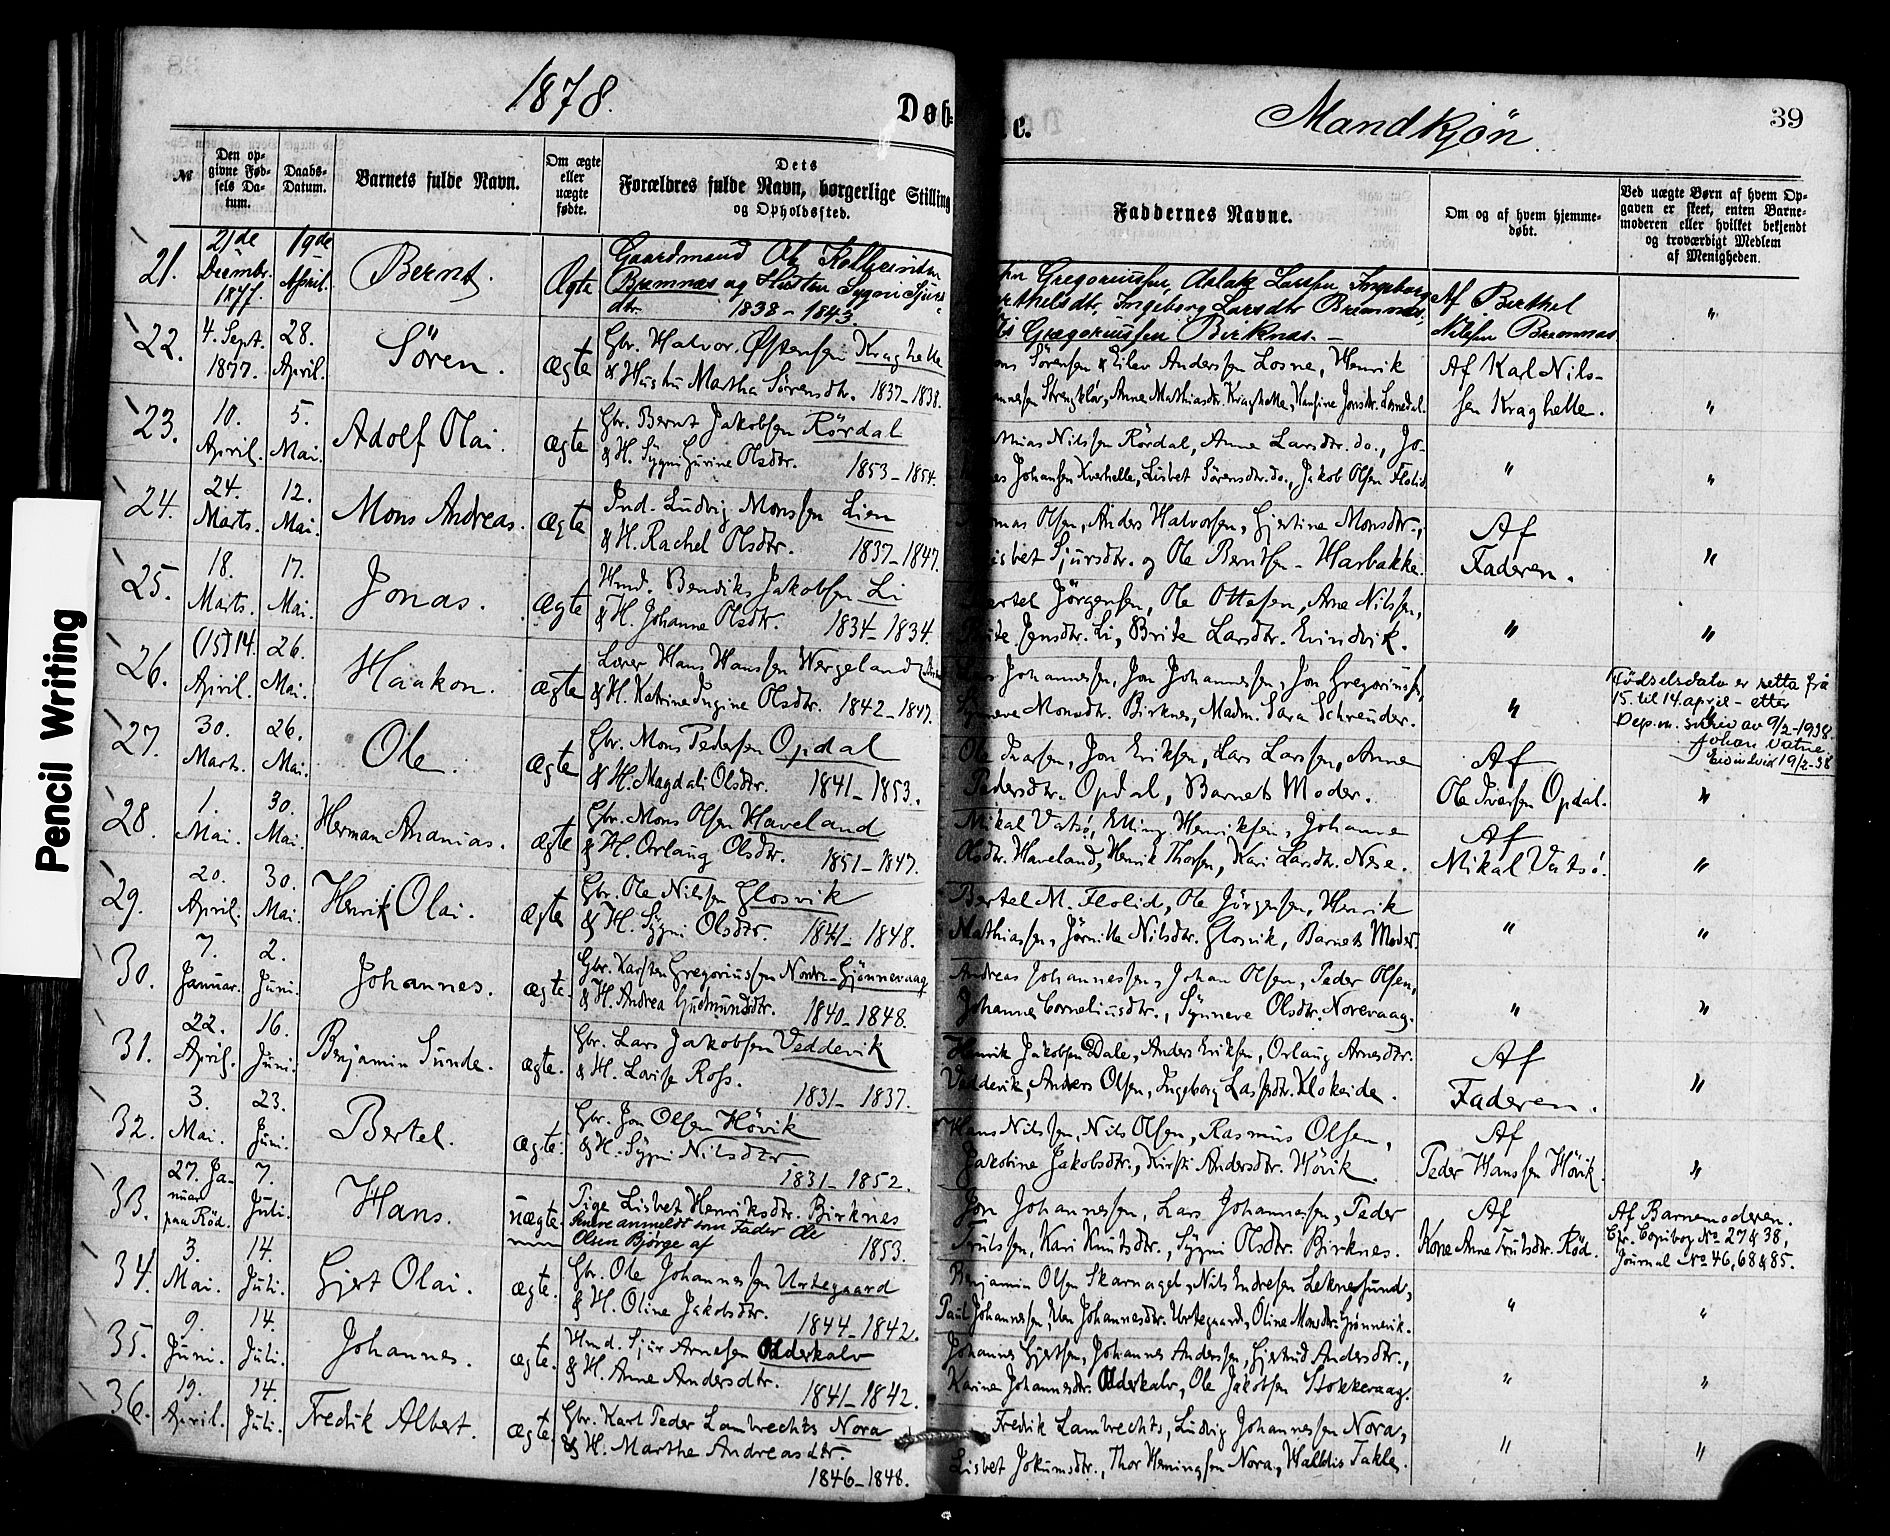 1878.
Døbte.
Mandkjøn.
39
№
Den opgivne Fødsels Datum.
Daabs-Datum.
Barnets fulde Navn.
Om ægte eller uægte fødte.
Dets Forældres fulde Navn, borgerlige Stilling og Opholdssted.
Faddernes Navne.
Om og af hvem hjemmedøbt.
Ved uægte Børn af hvem Opgaven er skeet, enten Barnemoderen eller hvilket bekjendt og troværdigt Medlem af Menigheden.
Pencil Writing
21. 21de Decembr. 1877. 19de April. Bernt. Ægte
Gaardmand Ole
Bremnæs og Hustru Sygni Sjursdtr. 1838 - 1843.
Gregoriussen, Aslak Larsen, Ingeborg
Berthelsdtr, Ingeborg Larsdtr Bremnæs,
Gregoriussen Birknæs. -
Af Berthel Nilsen Bremnæs
"
22. 4. Sept. 1877. 28. April. Sören. ægte
Gbr. Halvor Østensen Kraghelle
& Hustru Martha Sørensdtr. 1837-1838.
Sørensen & Eilev Andersen Losne, Henrik
Strengklør, Anne Mathiasdtr. Kraghelle, Hansine Jonsdtr. Losnedal.
Af Karl Nilssen Kraghelle.
"
23. 10. April. 5. Mai. Adolf Olai. ægte
Gbr. Bernt Jakobsen Rördal
& H. Sygni Gurine Olsdtr. 1853-1854.
Mathias Nilssen Rördal, Anne Larsdtr. do., Jo-
Johansen Kverhelle, Lisbet Sörensdtr. do., Jakob Olsen Flolid.
"
"
24. 24. Marts. 12. Mai. Mons Andreas. ægte
Ind. Ludvig Monssen Lien
& H. Rachel Olsdtr. 1837-1847.
Tomas Olsen, Anders Halvorsen, Gjertine Monsdtr.,
Lisbet Sjursdtr. og Ole Berntsen - Harbakke.
Af Faderen.
"
25. 18. Marts. 17. Mai. Jonas. ægte
Hmd. Bendik Jakobsen Li
& H. Johanne Olsdtr. 1834-1834.
Bertel Jörgensen, Ole Ottesen, Arne Nilssen,
Brite Jensdtr. Li, Brite Larsdtr. Evindvik.
"
"
26. (15) 14. April. 26. Mai. Haakon. ægte
Lærer Hans Hanssen Wergeland
& H. Katrine Ingine Olsdtr. 1842-1847.
Johannesen, Jon Johannesen, Jon Gregoriussen,
Synneve Monsdtr. Birknes, Madm. Sara Schreuder.
"
Fødselsdato er retta frå
15. til 14. april - etter
Dep.m. skriv av 9/2-1938.
Johan Vatne.
Eivindvik 19/2-38
27. 30. Marts. 26. Mai. Ole. ægte
Gbr. Mons Pedersen Opdal
& H. Magdali Olsdtr. 1841-1853.
Ole Ivarsen, Jon Eriksen, Lars Larssen, Anne
Pedersdtr. Opdal, Barnets Moder.
Af Ole Ivarsen Opdal.
"
28. 1. Mai. 30. Mai. Herman Ananias. ægte
Gbr. Mons Olsen Haveland
& H. Orlaug Olsdtr. 1851-1847.
Mikal Vatsö, Elling Henriksen, Johanne
Olsdtr. Haveland, Henrik Thorsen, Kari Larsdtr. Nese.
Af Mikal Vatsö.
"
29. 20. April. 30. Mai. Henrik Olai. ægte
Gbr. Ole Nilsen Glosvik
& H. Sygni Olsdtr. 1841-1848.
Bertel M. Flolid, Ole Jörgensen, Henrik
Mathiassen, Jörnille Nilsdtr. Glosvik, Barnets Moder.
"
"
30. 7. Januar. 2. Juni. Johannes. ægte.
Gbr. Karsten Gregoriussen Nordre-Gjønnevaag
& H. Andrea Gudmundsdtr. 1840-1848.
Andreas Johannessen, Johan Olsen, Peder Olsen,
Johanne Corneliusdtr., Synneve Olsdtr. Norevaag.
"
"
31. 22. April. 16. Juni. Benjamin Sunde. ægte.
Gbr. Lars Jakobsen Veddevik
& H. Lovise Ross. 1831-1837.
Henrik Jakobsen Dale, Anders Eriksen, Orlaug Arnesdtr.
Veddevik, Anders Olsen, Ingeborg Lassesdtr. Klokeide.
Af Faderen.
"
32. 3. Mai. 23. Juni. Bertel. ægte.
Gbr. Jon Olsen Hövik
& H. Sygni Nilsdtr. 1831-1852.
Hans Nilssen, Nils Olsen, Rasmus Olsen,
Jakobine Jakobsdtr., Kirsti Andersdtr. Hövik.
Af Peder Hanssen Hövik.
"
33. 27. Januar paa Röd. 7. Juli. Hans. uægte.
Pige Lisbet Henriksdtr. Birknes
anmeldt som Fader Ole
Olsen Bjørge af 1853.
Jon Johannesen, Lars Johannesen, Peder
Trulssen, Kari Knutsdtr., Sygni Olsdtr. Birknes.
Af Kone Anne Trulsdtr. Röd.
Af Barnemoderen.
Cfr. Copibog No 27 & 38,
Journal No 46, 68 & 85.
34. 3. Mai. 14. Juli. Gjert Olai. ægte.
Gbr. Ole Johannessen Urtegaard
& H. Oline Jakobsdtr. 1844-1842.
Benjamin Olsen Skarnagel, Nils Endresen Leknessund,
Paul Johannesen, Johannesdtr. Urtegaard, Oline Monsdtr. Grønnevik.
"
"
35. 9. Juni. 14. Juli. Johannes. ægte.
Hmd. Sjur Arnesen Olderkalv
& H. Anne Andersdtr. 1841-1842.
Johannes Gjertsen, Johannes Anderssen, Gjertrud Andersdtr.,
Karine Johannesdtr. Olderkalv, Ole Jakobsen Stokkevaag.
"
"
36. 19. April. 14. Juli. Fredik Albert. ægte.
Gbr. Karl Peder Lambrechts Nora
& H. Marthe Andreasdtr. 1846-1848.
Fredik Lambrechts, Ludvig Johannessen Nora,
Lisbet Jokumsdtr., Thor Hemingsen Nora, Walldis Takle.
"
"